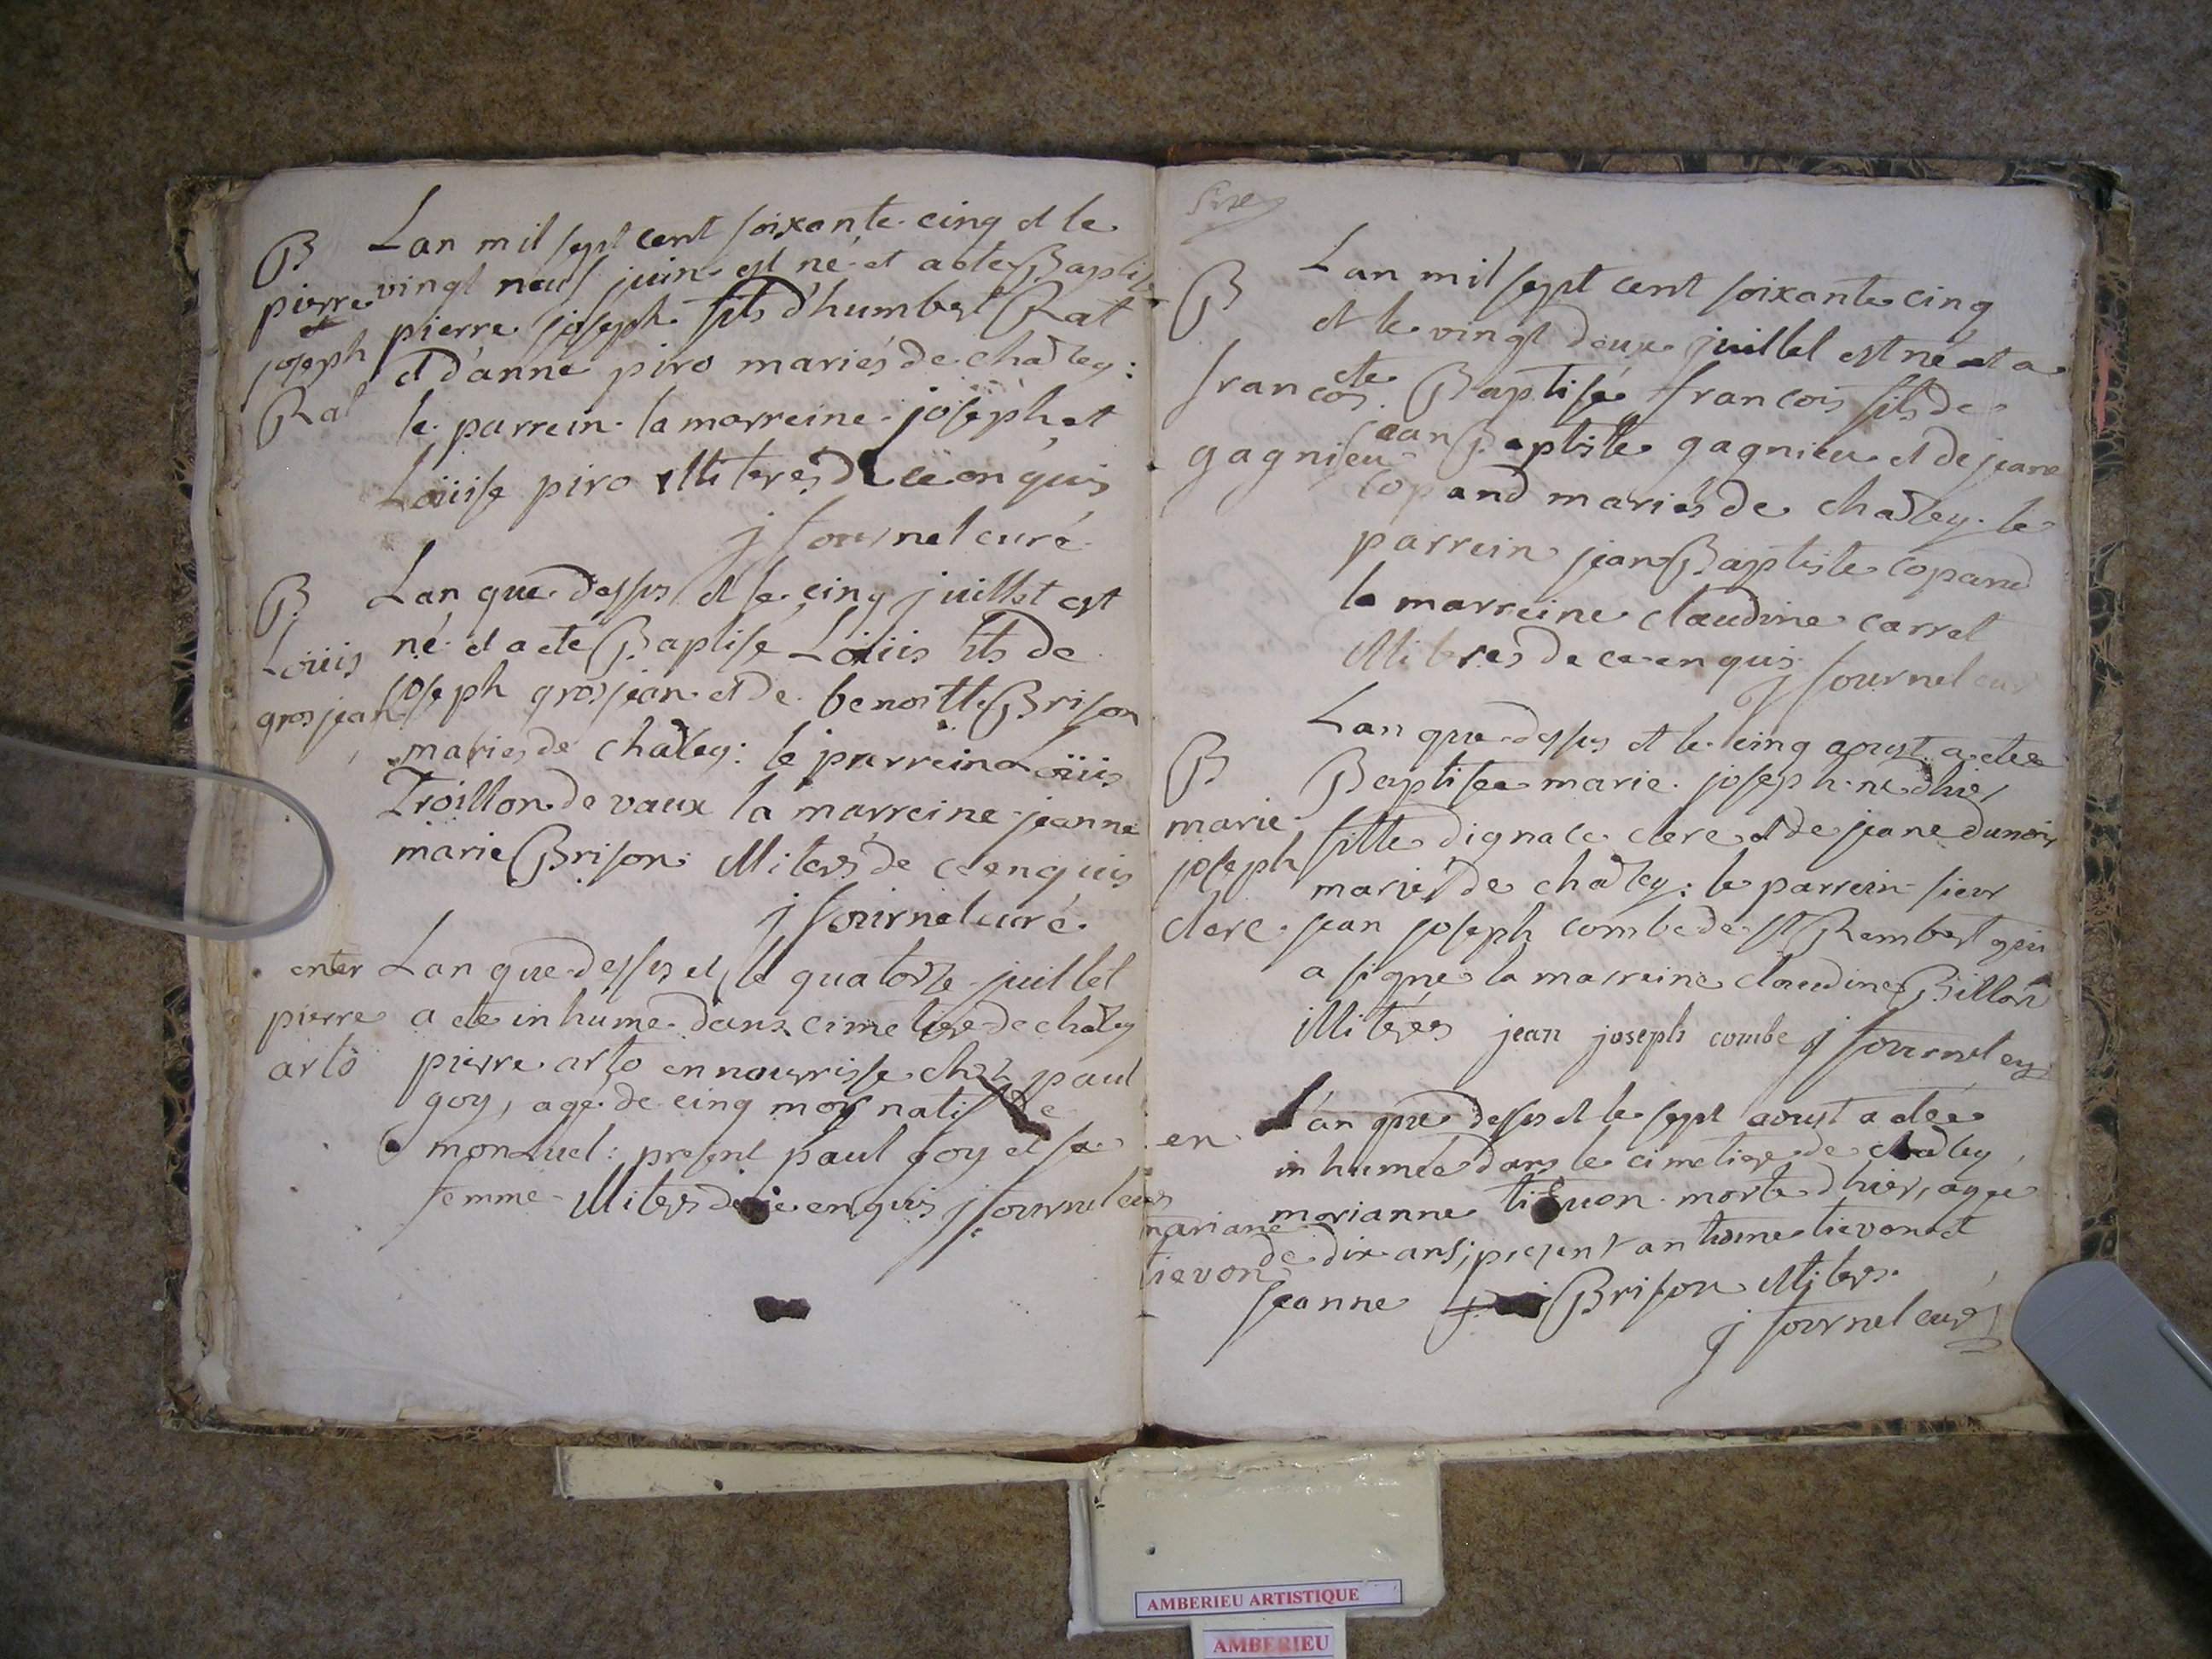 B
pierre
et
joseph
Rat
Lan mil sept cent soixante cinq et le
vingt neuf juin est né et a ete Baptisé
pierre joseph fils d'humbert Rat
et d'anne piro mariés de chaley:
le parrein la marreine joseph et
Loüise piro illiteres de ce enquis
j fournel curé
B
Loüis
grosjean
Lan que dessus et le cinq juillet est
né et a ete Baptisé Loüis fils de
joseph grosjean et de benoitte Brison
maries de chaley: le parrein Loüis
Troillon de vaux la marreine jeanne
marie Brison illiters de ce enquis
j fournel curé
enter
pierre
arto
Lan que dessus et le quatorze juillet
a ete inhume dans cimetiere de chaley
pierre arto en nourrisse chez paul
goy, agé de cinq moys natif de
monluel: present paul goy et sa
femme illiters de ce enquis j fournel cure
B
francois
gagnieu
Lan mil sept cent soixante cinq
et le vingt deux juillet est né et a
ete Baptisé francois fils de
jean Baptiste gagnieu et de jeane
copand mariés de chaley le
parrein jean Baptiste copand
la marreine claudine carrel
illiteres de ce enquis
j fournel cur
B
marie
joseph
clerc
Lan que dessus et le cinq aoust a etee
Baptisee marie joseph ne d'hier
fille dignace clerc et de jeane dunoir
mariés de chaley: le parrein sieur
jean joseph combe de st Rembert qui
a signe la marreine claudine Billon
illiteres jean joseph combe j fournel
en
mariane
tievon
L'an que dessus et le sept aoust a etée
inhumée dans le cimetiere de chaley
marianne tievon morte d'hier, agee
de dix ans; present antoine tievon et
jeanne Brison illiters
j fournel curé
AMBERIEU ARTISTIQUE
AMBERIEU